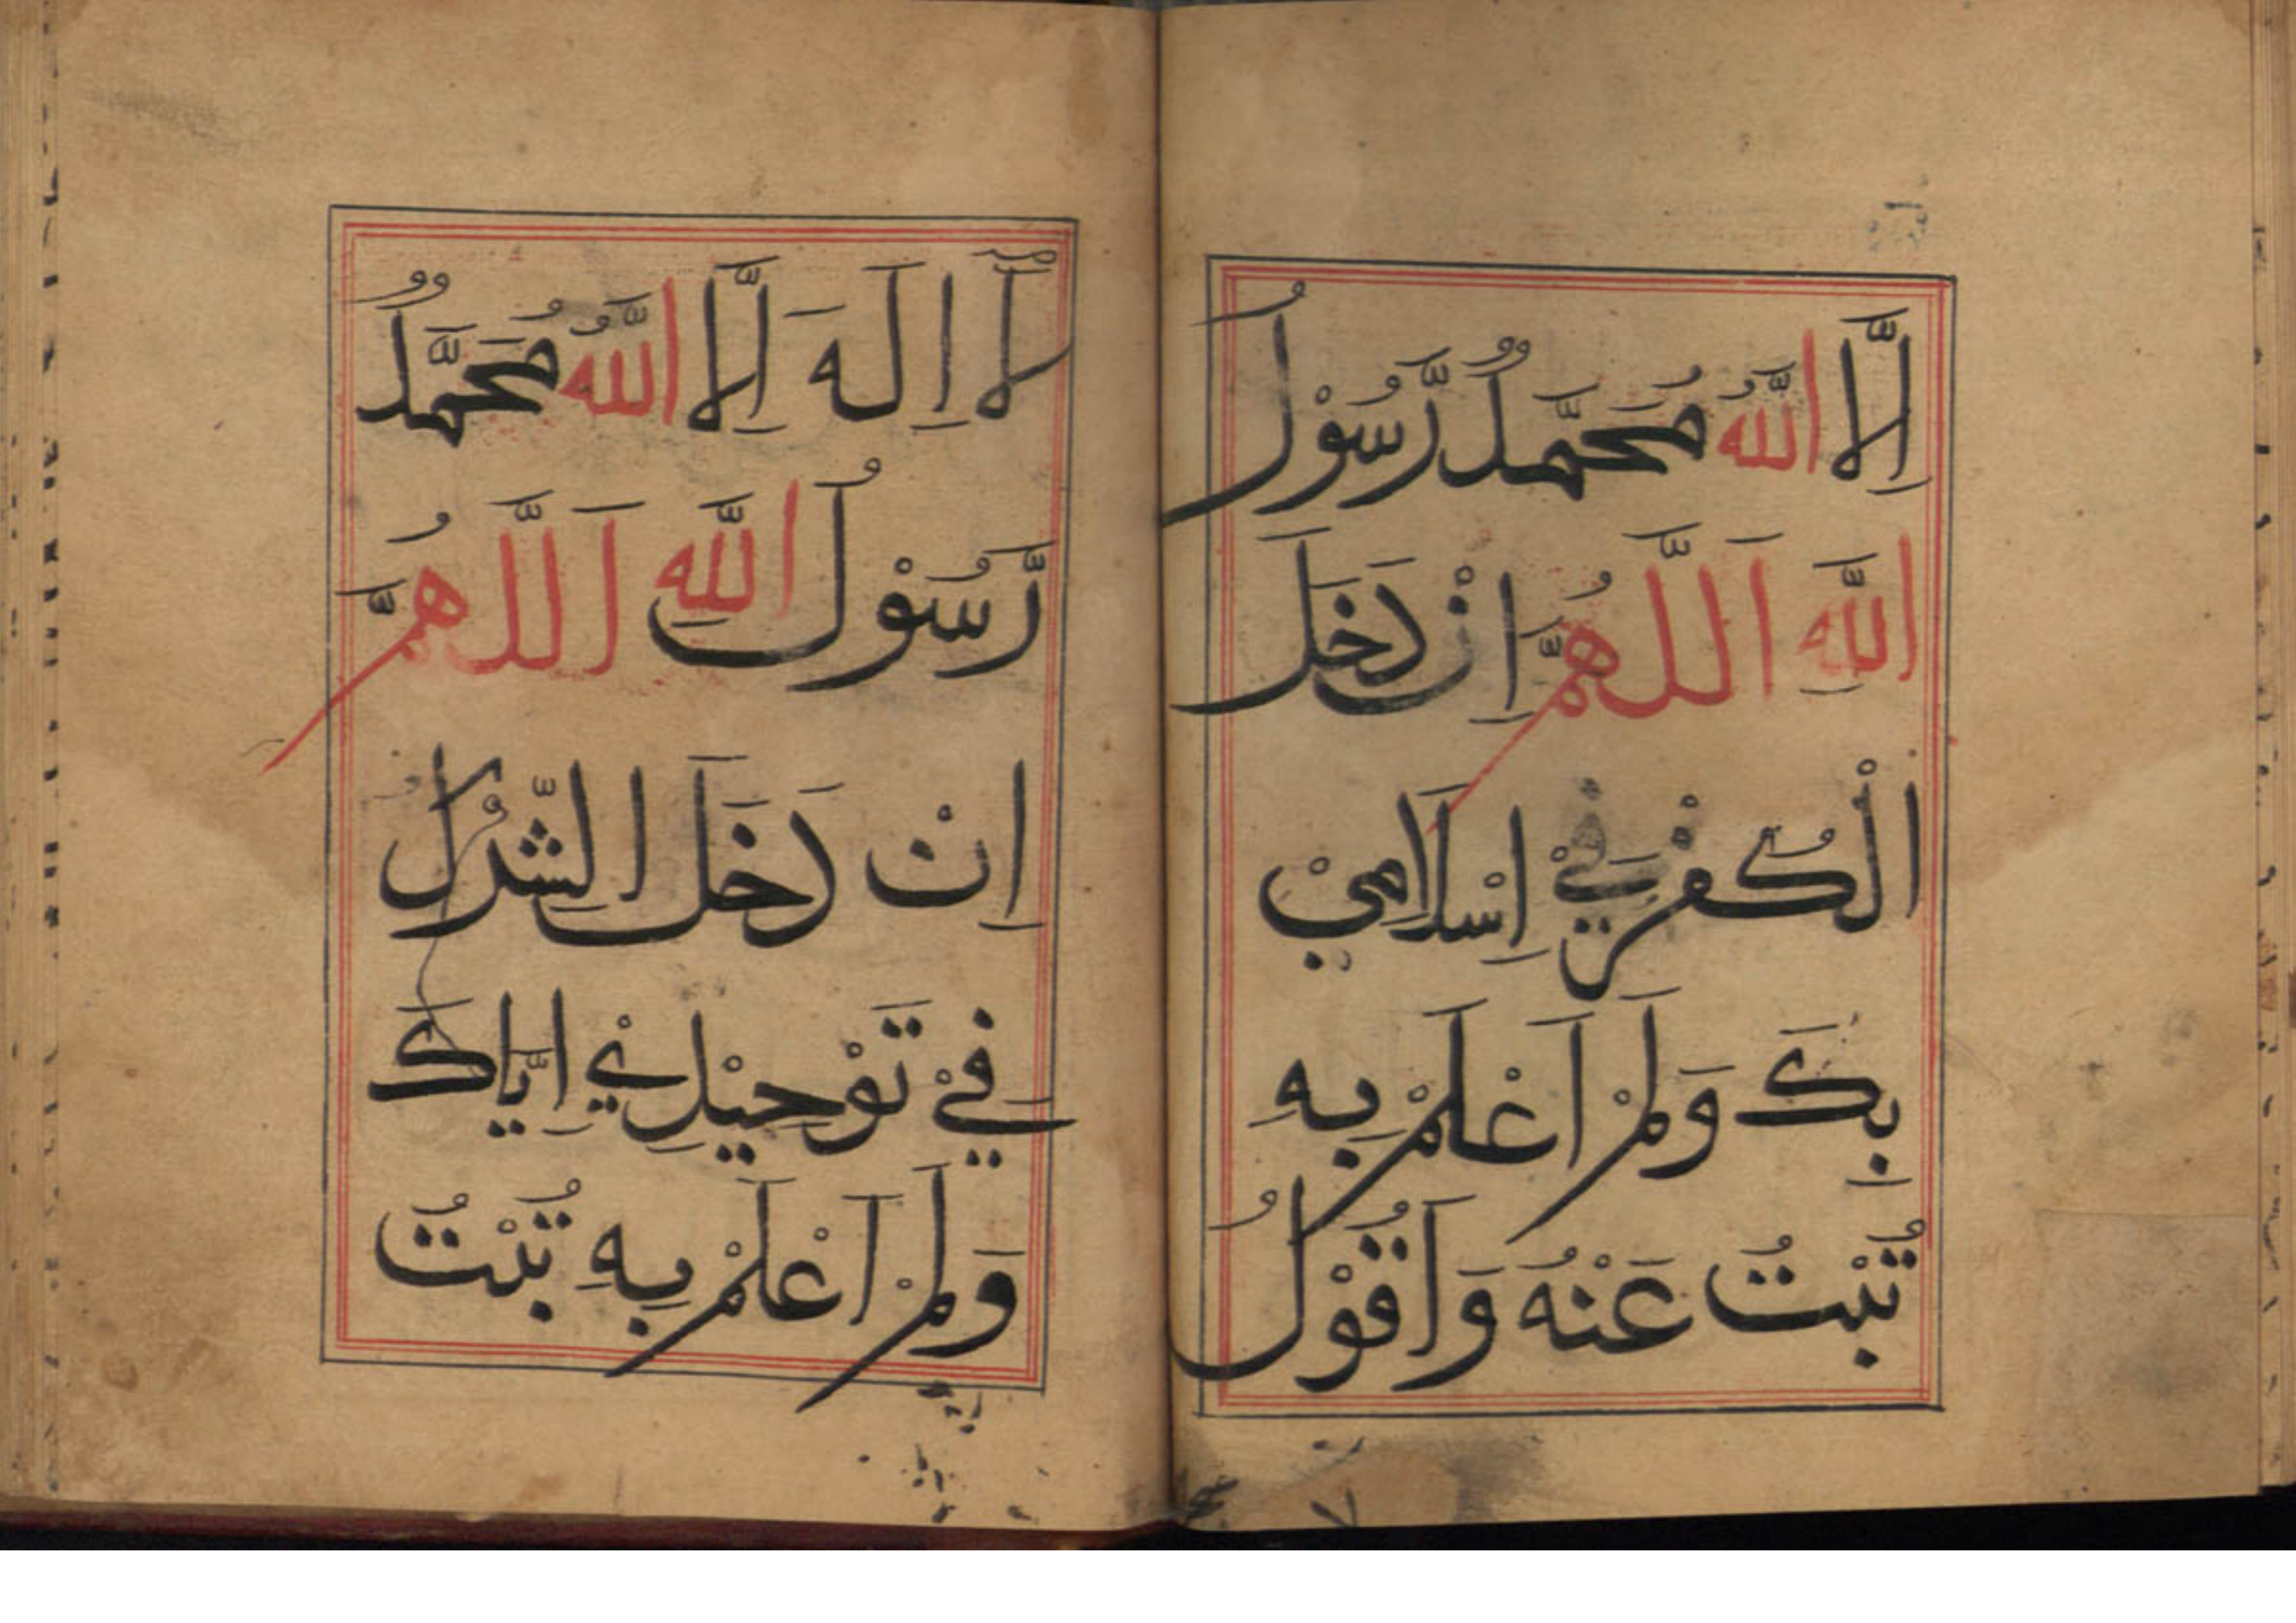 اِلَّا اللّٰهُ مُحَمَّدٌ رَّسُوْلُ
اللّٰهِ اَللّٰهُمَّ اِنْ دَخَلَ
الْكُفْرُ فِيْ اِسْلَامِيْ
بِكَ وَلَمْ اَعْلَمْ بِهِ
تُبْتُ عَنْهُ وَاَقُوْلُ
لَآ اِلَهَ اِلَّا اللّٰهُ مُحَمَّدٌ
رَّسُوْلُ اللّٰهِ اَللّٰهُمَّ
اِنْ دَخَلَ الشِّرْكُ
فِيْ تَوْحِيْدِيْ اِيَّاكَ
وَلَمْ اَعْلَمْ بِهِ تُبْتُ